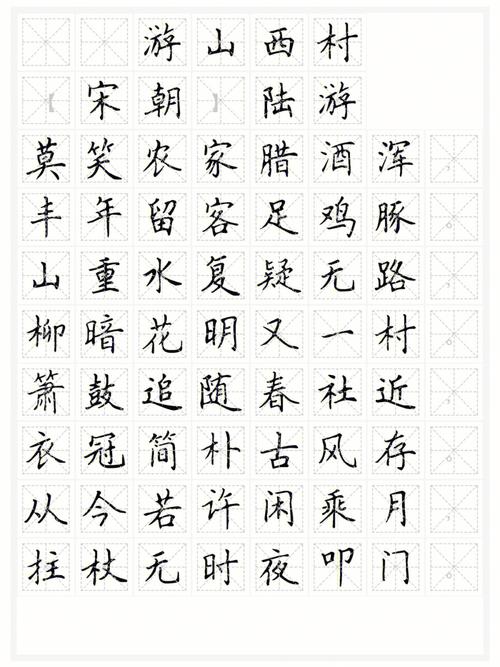 游山西村
【宋朝】陆游
莫笑农家腊酒浑，
丰年留客足鸡豚。
山重水复疑无路，
柳暗花明又一村。
箫鼓追随春社近，
衣冠简朴古风存。
从今若许闲乘月，
拄杖无时夜叩门。